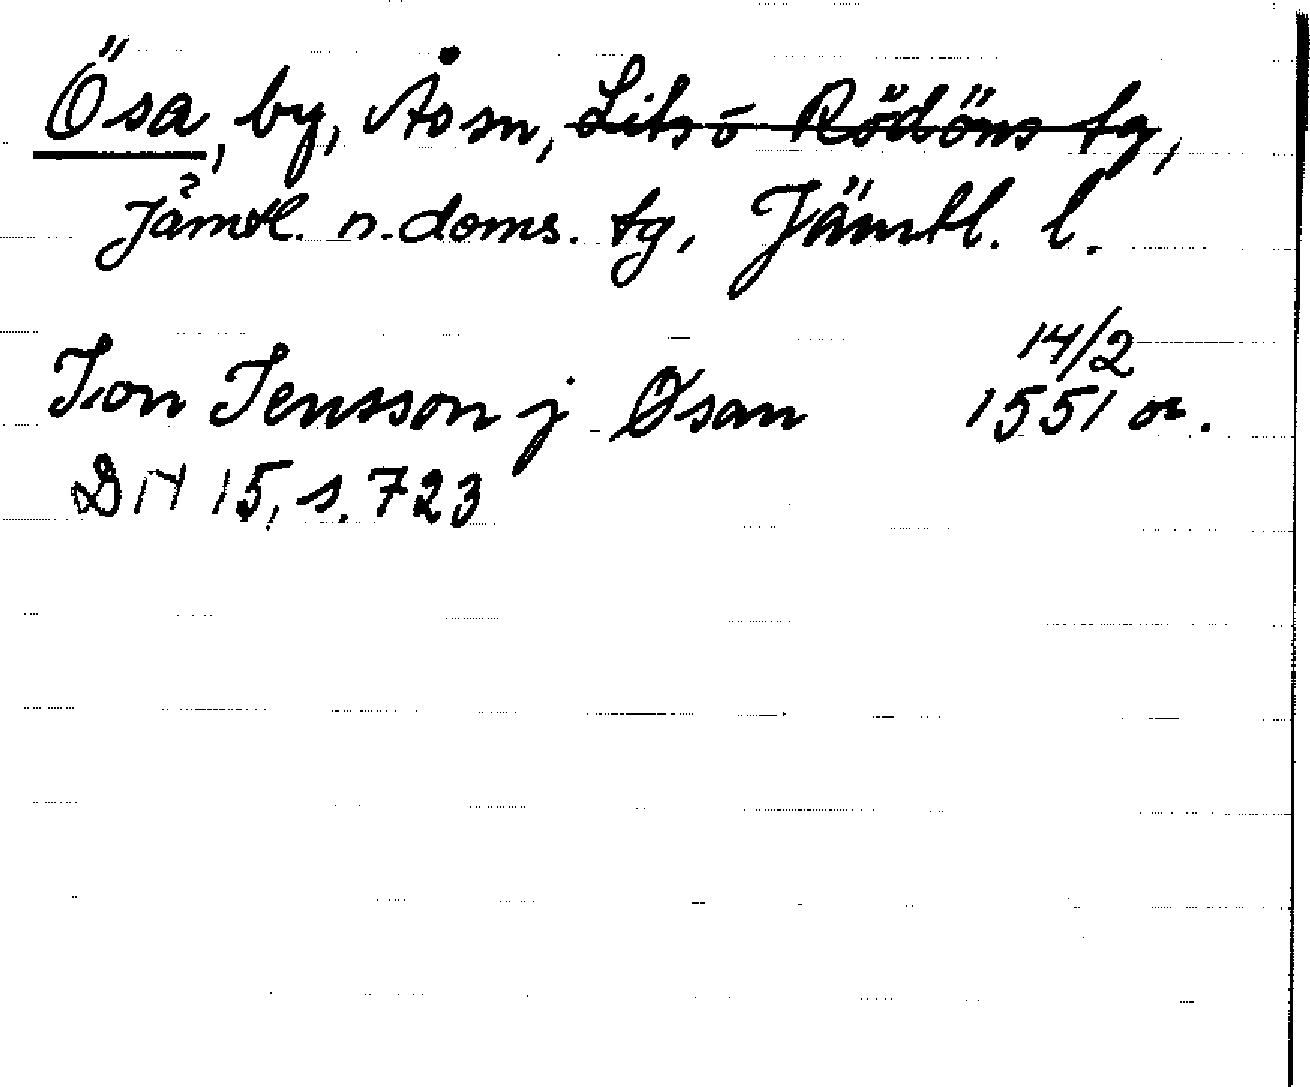 Ösa, by, Ås sn, ~~Lits o Rödöns tg~~,
Jämtl. n. doms. tg, Jämtl. l.
14/2
Jon Jensson j Øsan 1551 or.
DN 15, s. 723